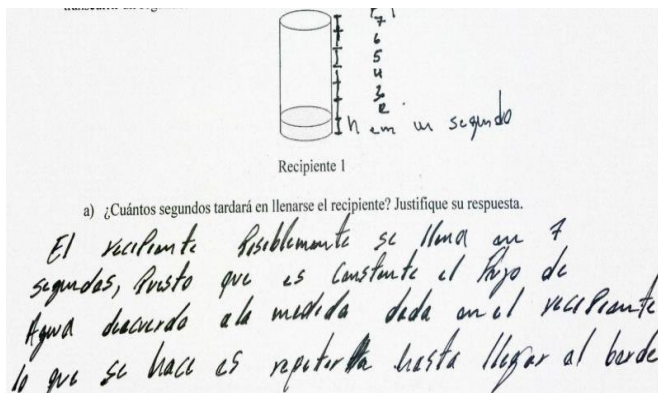 7
6
5
4
3
2
h em un segundo
Recipiente 1
a) ¿Cuántos segundos tardará en llenarse el recipiente? Justifique su respuesta.
El recipiente Posiblemente se llena en 7
segundos, Puesto que es constante el flujo de
Agua deacuerdo ala medida dada en el recipiente
lo que se hace es repetir la hasta llegar al borde